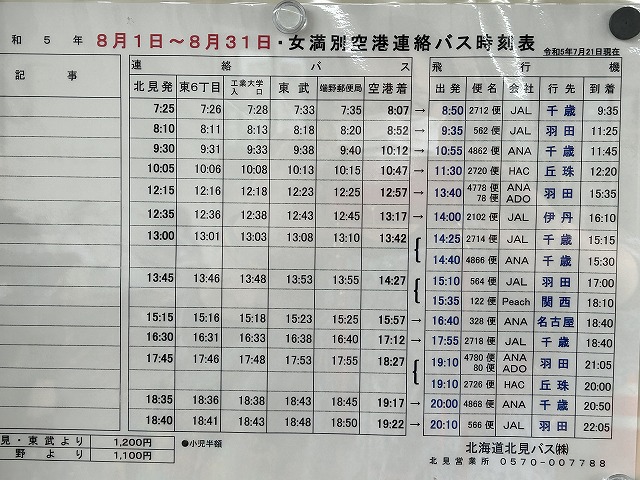 和 5 年 8月1日～8月31日・女満別空港連絡バス時刻表 令和5年7月21日現在
記 事 連 絡 バ ス 飛 行 機
北見発 東6丁目 工業大学入口 東武 端野郵便局 空港着 出発 便名 会社 行先 到着
7:25 7:26 7:28 7:33 7:35 8:07 → 8:50 2712 便 JAL 千歳 9:35
8:10 8:11 8:13 8:18 8:20 8:52 → 9:35 562 便 JAL 羽田 11:25
9:30 9:31 9:33 9:38 9:40 10:12 → 10:55 4862 便 ANA 千歳 11:45
10:05 10:06 10:08 10:13 10:15 10:47 → 11:30 2720 便 HAC 丘珠 12:20
12:15 12:16 12:18 12:23 12:25 12:57 → 13:40 4778 便 78 便 ANA ADO 羽田 15:35
12:35 12:36 12:38 12:43 12:45 13:17 → 14:00 2102 便 JAL 伊丹 16:10
13:00 13:01 13:03 13:08 13:10 13:42 { 14:25 2714 便 JAL 千歳 15:15
14:40 4866 便 ANA 千歳 15:30
13:45 13:46 13:48 13:53 13:55 14:27 { 15:10 564 便 JAL 羽田 17:00
15:35 122 便 Peach 関西 18:10
15:15 15:16 15:18 15:23 15:25 15:57 → 16:40 328 便 ANA 名古屋 18:40
16:30 16:31 16:33 16:38 16:40 17:12 → 17:55 2718 便 JAL 千歳 18:40
17:45 17:46 17:48 17:53 17:55 18:27 { 19:10 4780 便 80 便 ANA ADO 羽田 21:05
19:10 2726 便 HAC 丘珠 20:00
18:35 18:36 18:38 18:43 18:45 19:17 → 20:00 4868 便 ANA 千歳 20:50
18:40 18:41 18:43 18:48 18:50 19:22 → 20:10 566 便 JAL 羽田 22:05
見・東武より 1,200円 ●小児半額 北海道北見バス㈱
野より 1,100円 北見営業所 0570-007788